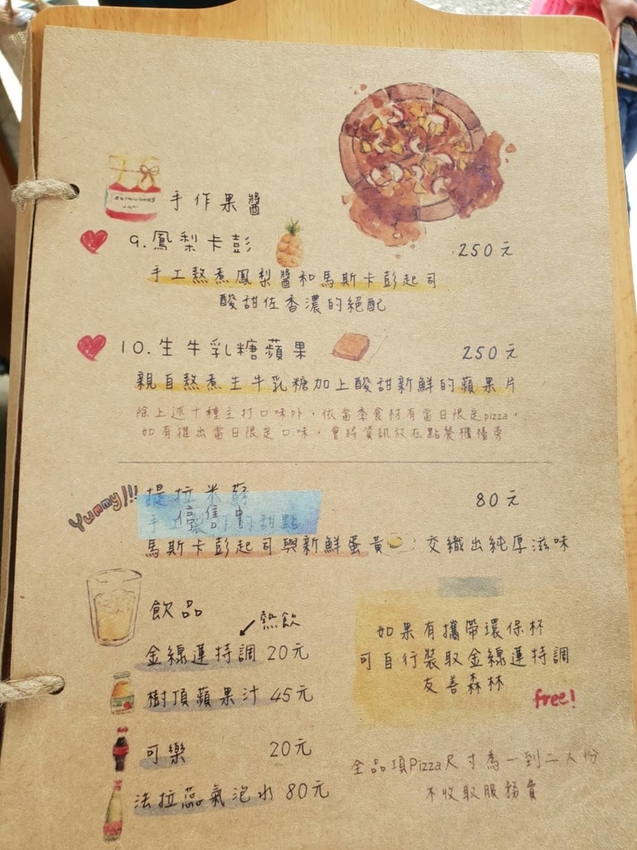 strawberry jam
手作果醬
9.鳳梨卡彭 250元
手工熬煮鳳梨醬和馬斯卡彭起司
酸甜佐香濃的絕配
10.生牛乳糖蘋果 250元
親自熬煮生牛乳糖加上酸甜新鮮的蘋果片
除上述十種主打口味外，依當季食材有當日限定pizza，
如有推出當日限定口味，會將資訊放在點餐櫃檯旁
Yummy!!!
提拉米蘇 80元
停售中
馬斯卡彭起司與新鮮蛋黃 交織出純厚滋味
飲品
熱飲
金線蓮特調 20元
樹頂蘋果汁 45元
可樂 20元
法拉蕊氣泡水 80元
如果有攜帶環保杯
可自行裝取金線蓮特調
友善森林
free!
全品項Pizza尺寸為一到二人份
不收取服務費